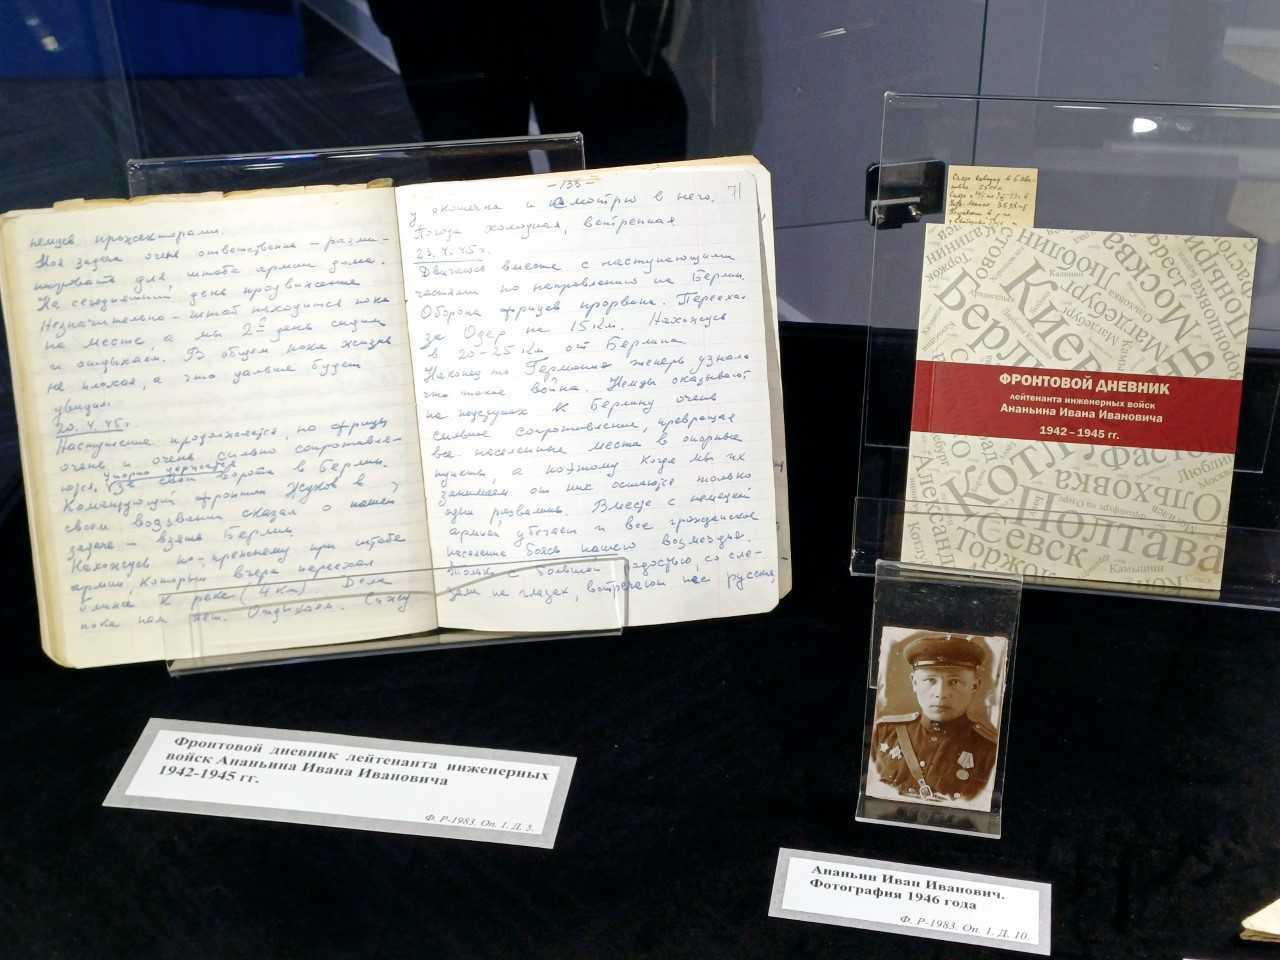 немцев прожекторами.
Моя задача очень ответственна – разми-
нировать для штаба армии дома.
На сегодняшний день продвижение
незначительно – штаб находится пока
на месте, а мы 2й день сидим
и отдыхаем. В общем пока жизнь
не плохая, а что дальше будет
увидим.
20.4.45г.
Наступление продолжается, но фрицы
очень и очень сильно сопротивля-
ются. Упорно держатся
за свои ворота в Берлин.
Командующий фронтом Жуков в
своем воззвании сказал о нашей
задаче – взять Берлин.
Нахожусь по-прежнему при штабе
армии, который вчера переехал
ближе к реке (4 км). Дела
пока нам нет. Отдыхаем. Сижу
-135-
71
у окошечка и смотрю в него.
Погода холодная, ветренная
23.4.45г.
Двигаюсь вместе с наступающими
частями по направлению на Берлин.
Оборона фрицев прорвана. Переехал
за Одер на 15 км. Нахожусь
в 20-25 км от Берлина
Наконец-то Германия теперь узнала
что такое война. Немцы оказывают
на подступах к Берлину очень
сильное сопротивление, превращая
все населенные места в опорные
пункты, а поэтому когда мы их
занимаем от них остаются только
одни развалины. Вместе с немецкой
армией убегает и все гражданское
население боясь нашего возмездия.
Только с большой радостью, со сле-
зами на глазах, встречают нас русские,
ФРОНТОВОЙ ДНЕВНИК
лейтенанта инженерных войск
Ананьина Ивана Ивановича
1942 – 1945 гг.
Киев
Берлин
Москва
Люблин
Магдебург
Торжок
Калинин
Поныри
Котлу
Фастов
Ольховка
Полтава
Севск
Торжок
Александ
Камышин
Люблин
Фронтовой дневник лейтенанта инженерных
войск Ананьина Ивана Ивановича
1942-1945 гг.
Ф. Р-1983. Оп. 1. Д. 5.
Ананьин Иван Иванович.
Фотография 1946 года
Ф. Р-1983. Оп. 1. Д. 10.